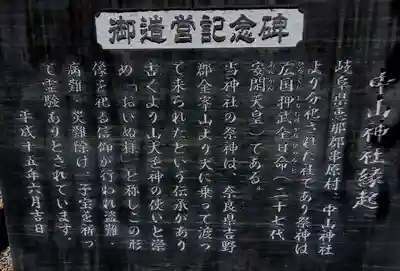 御造営記念碑
中山神社縁起
岐阜県恵那郡串原村、中山神社
より分祀された社であり祭神は
広国押武金日命(二十七代
安閑天皇)である。
当神社の祭神は、奈良県吉野
郡金峯山より犬に乗って渡っ
て来られたという伝承があり
古くより山犬を神の使いと崇
め「おいぬ様」と称しこの形
像を祀る信仰が行われ盗難、
病難、災難除け、子宝を祈っ
て霊験ありとされています。
平成十五年六月吉日